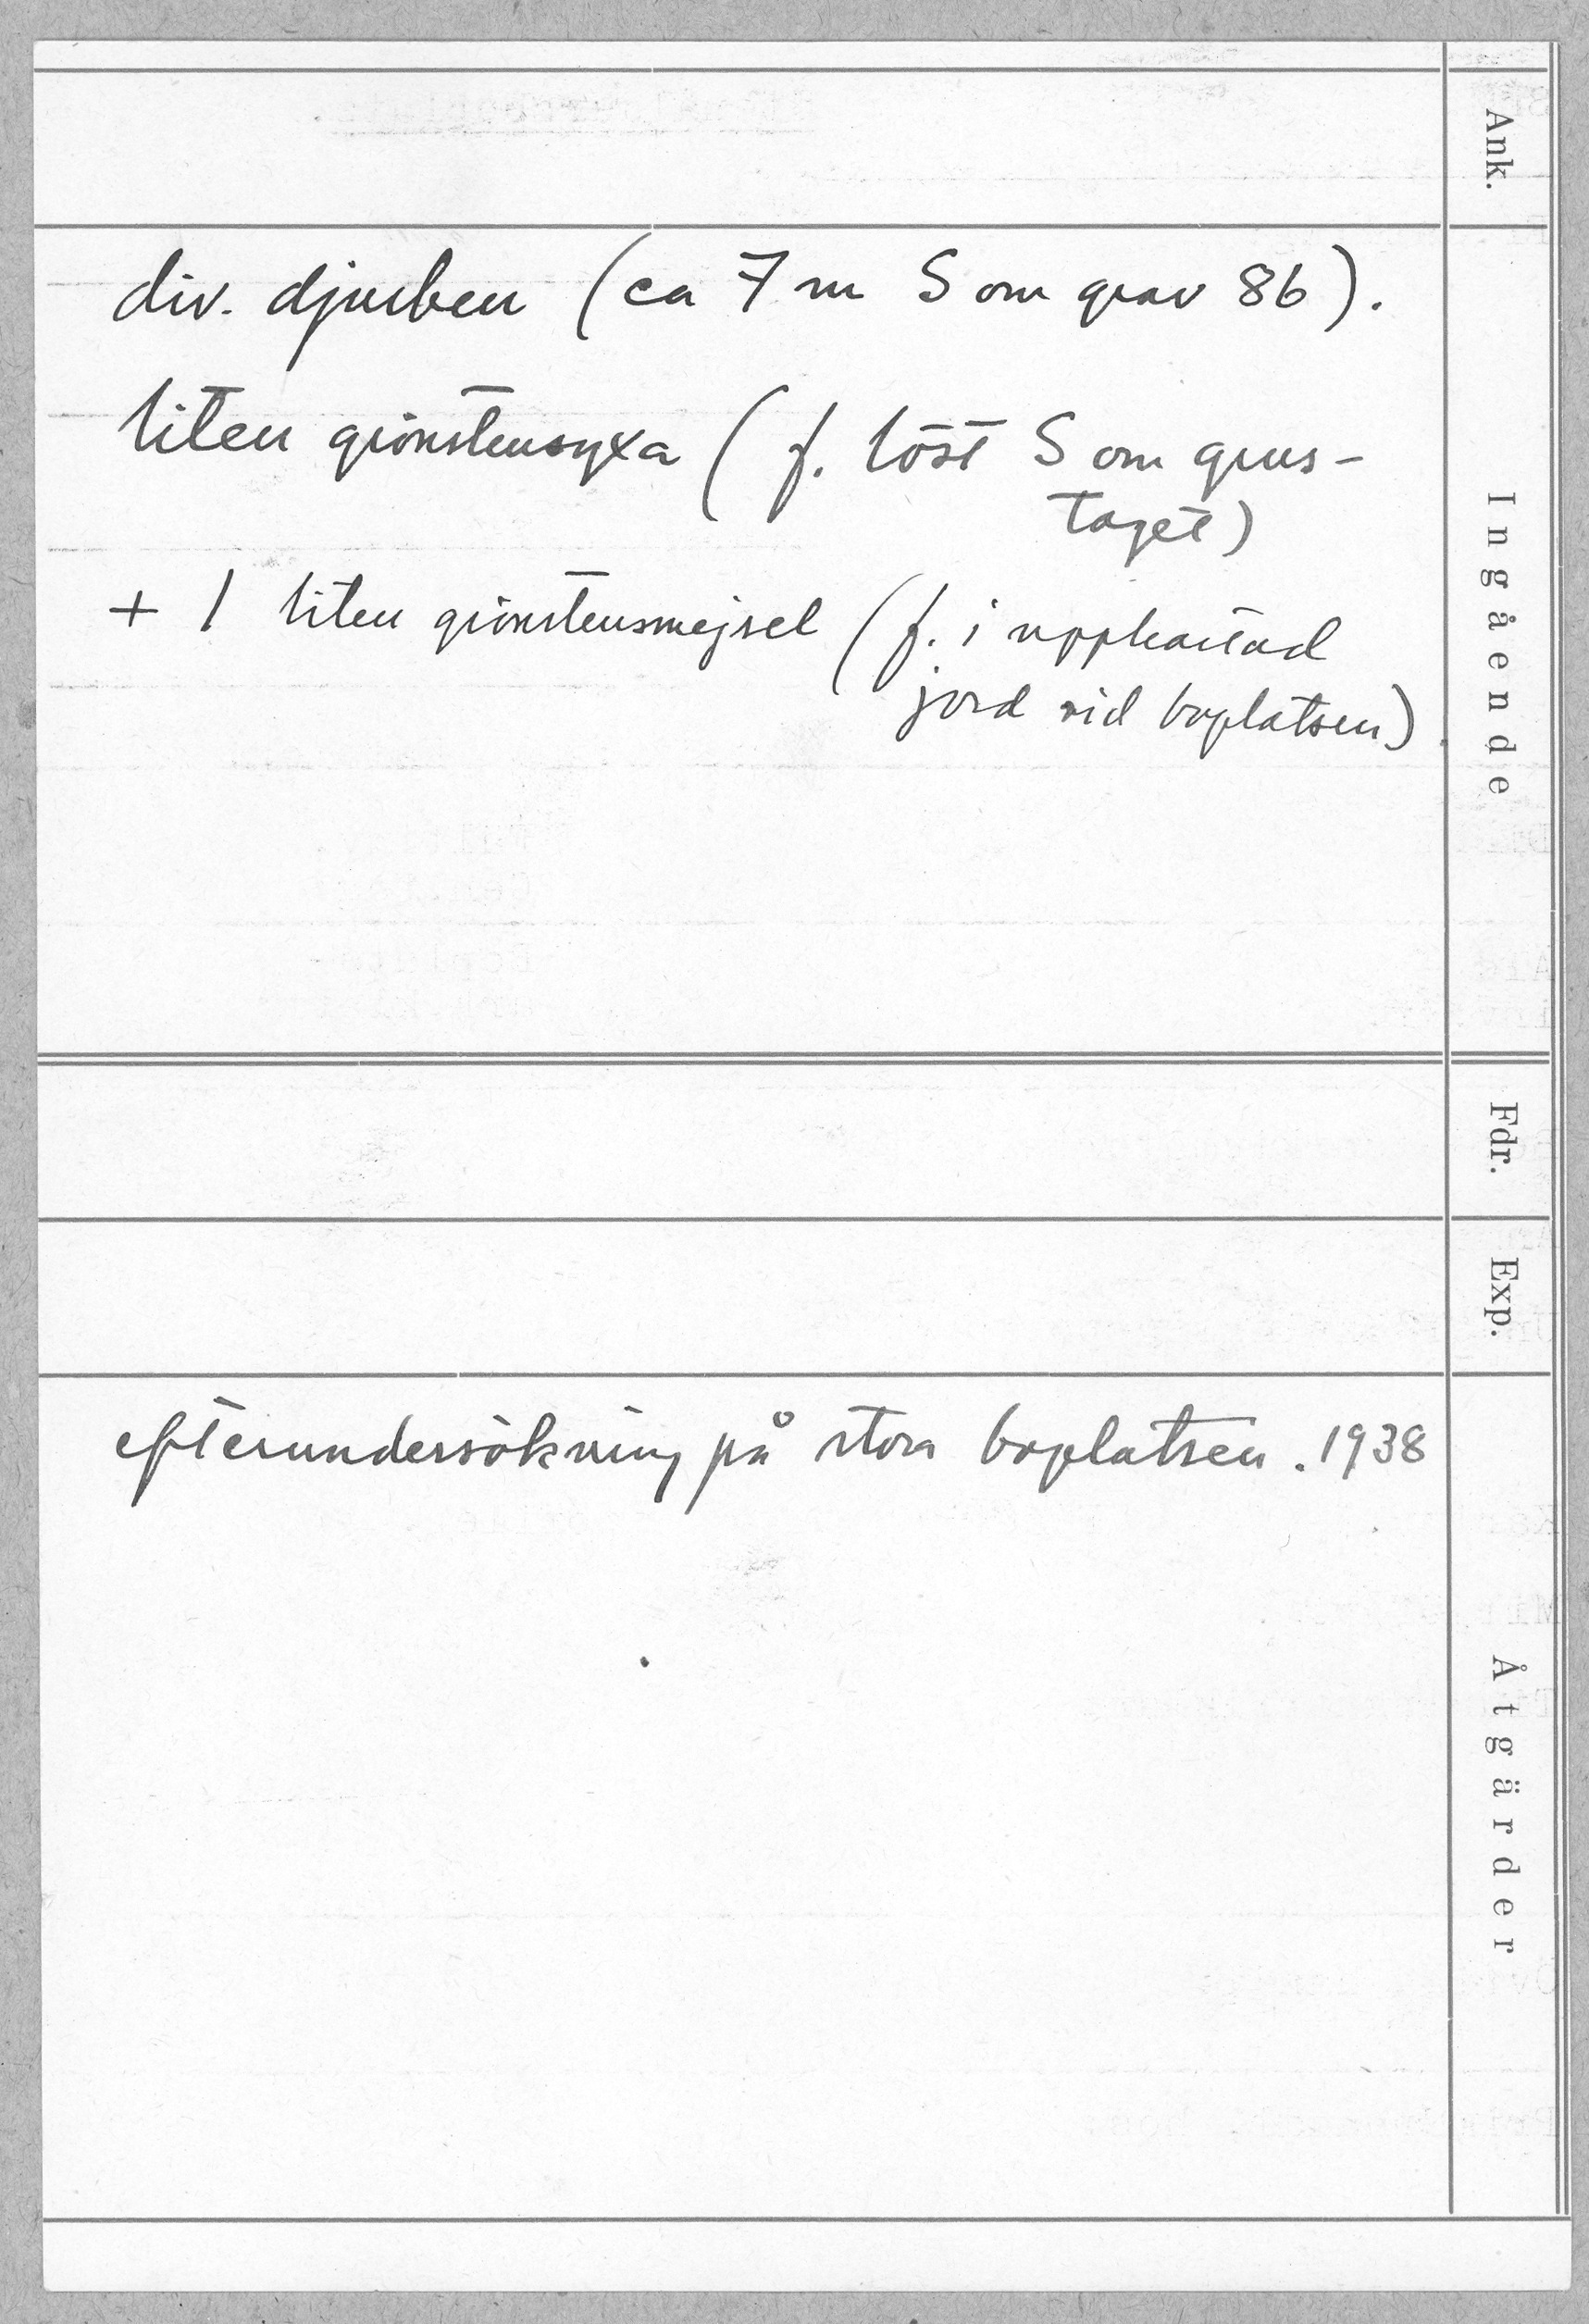 Ank.
div. djurben (ca 7 m S om grav 86).
liten grönstensyxa (f. löst S om grus-
taget)
+ 1 liten grönstensmejsel (f. i uppkastad
jord vid boplatsen)
Ingående
Fdr.
Exp.
efterundersökning på stora boplatsen. 1938
Åtgärder